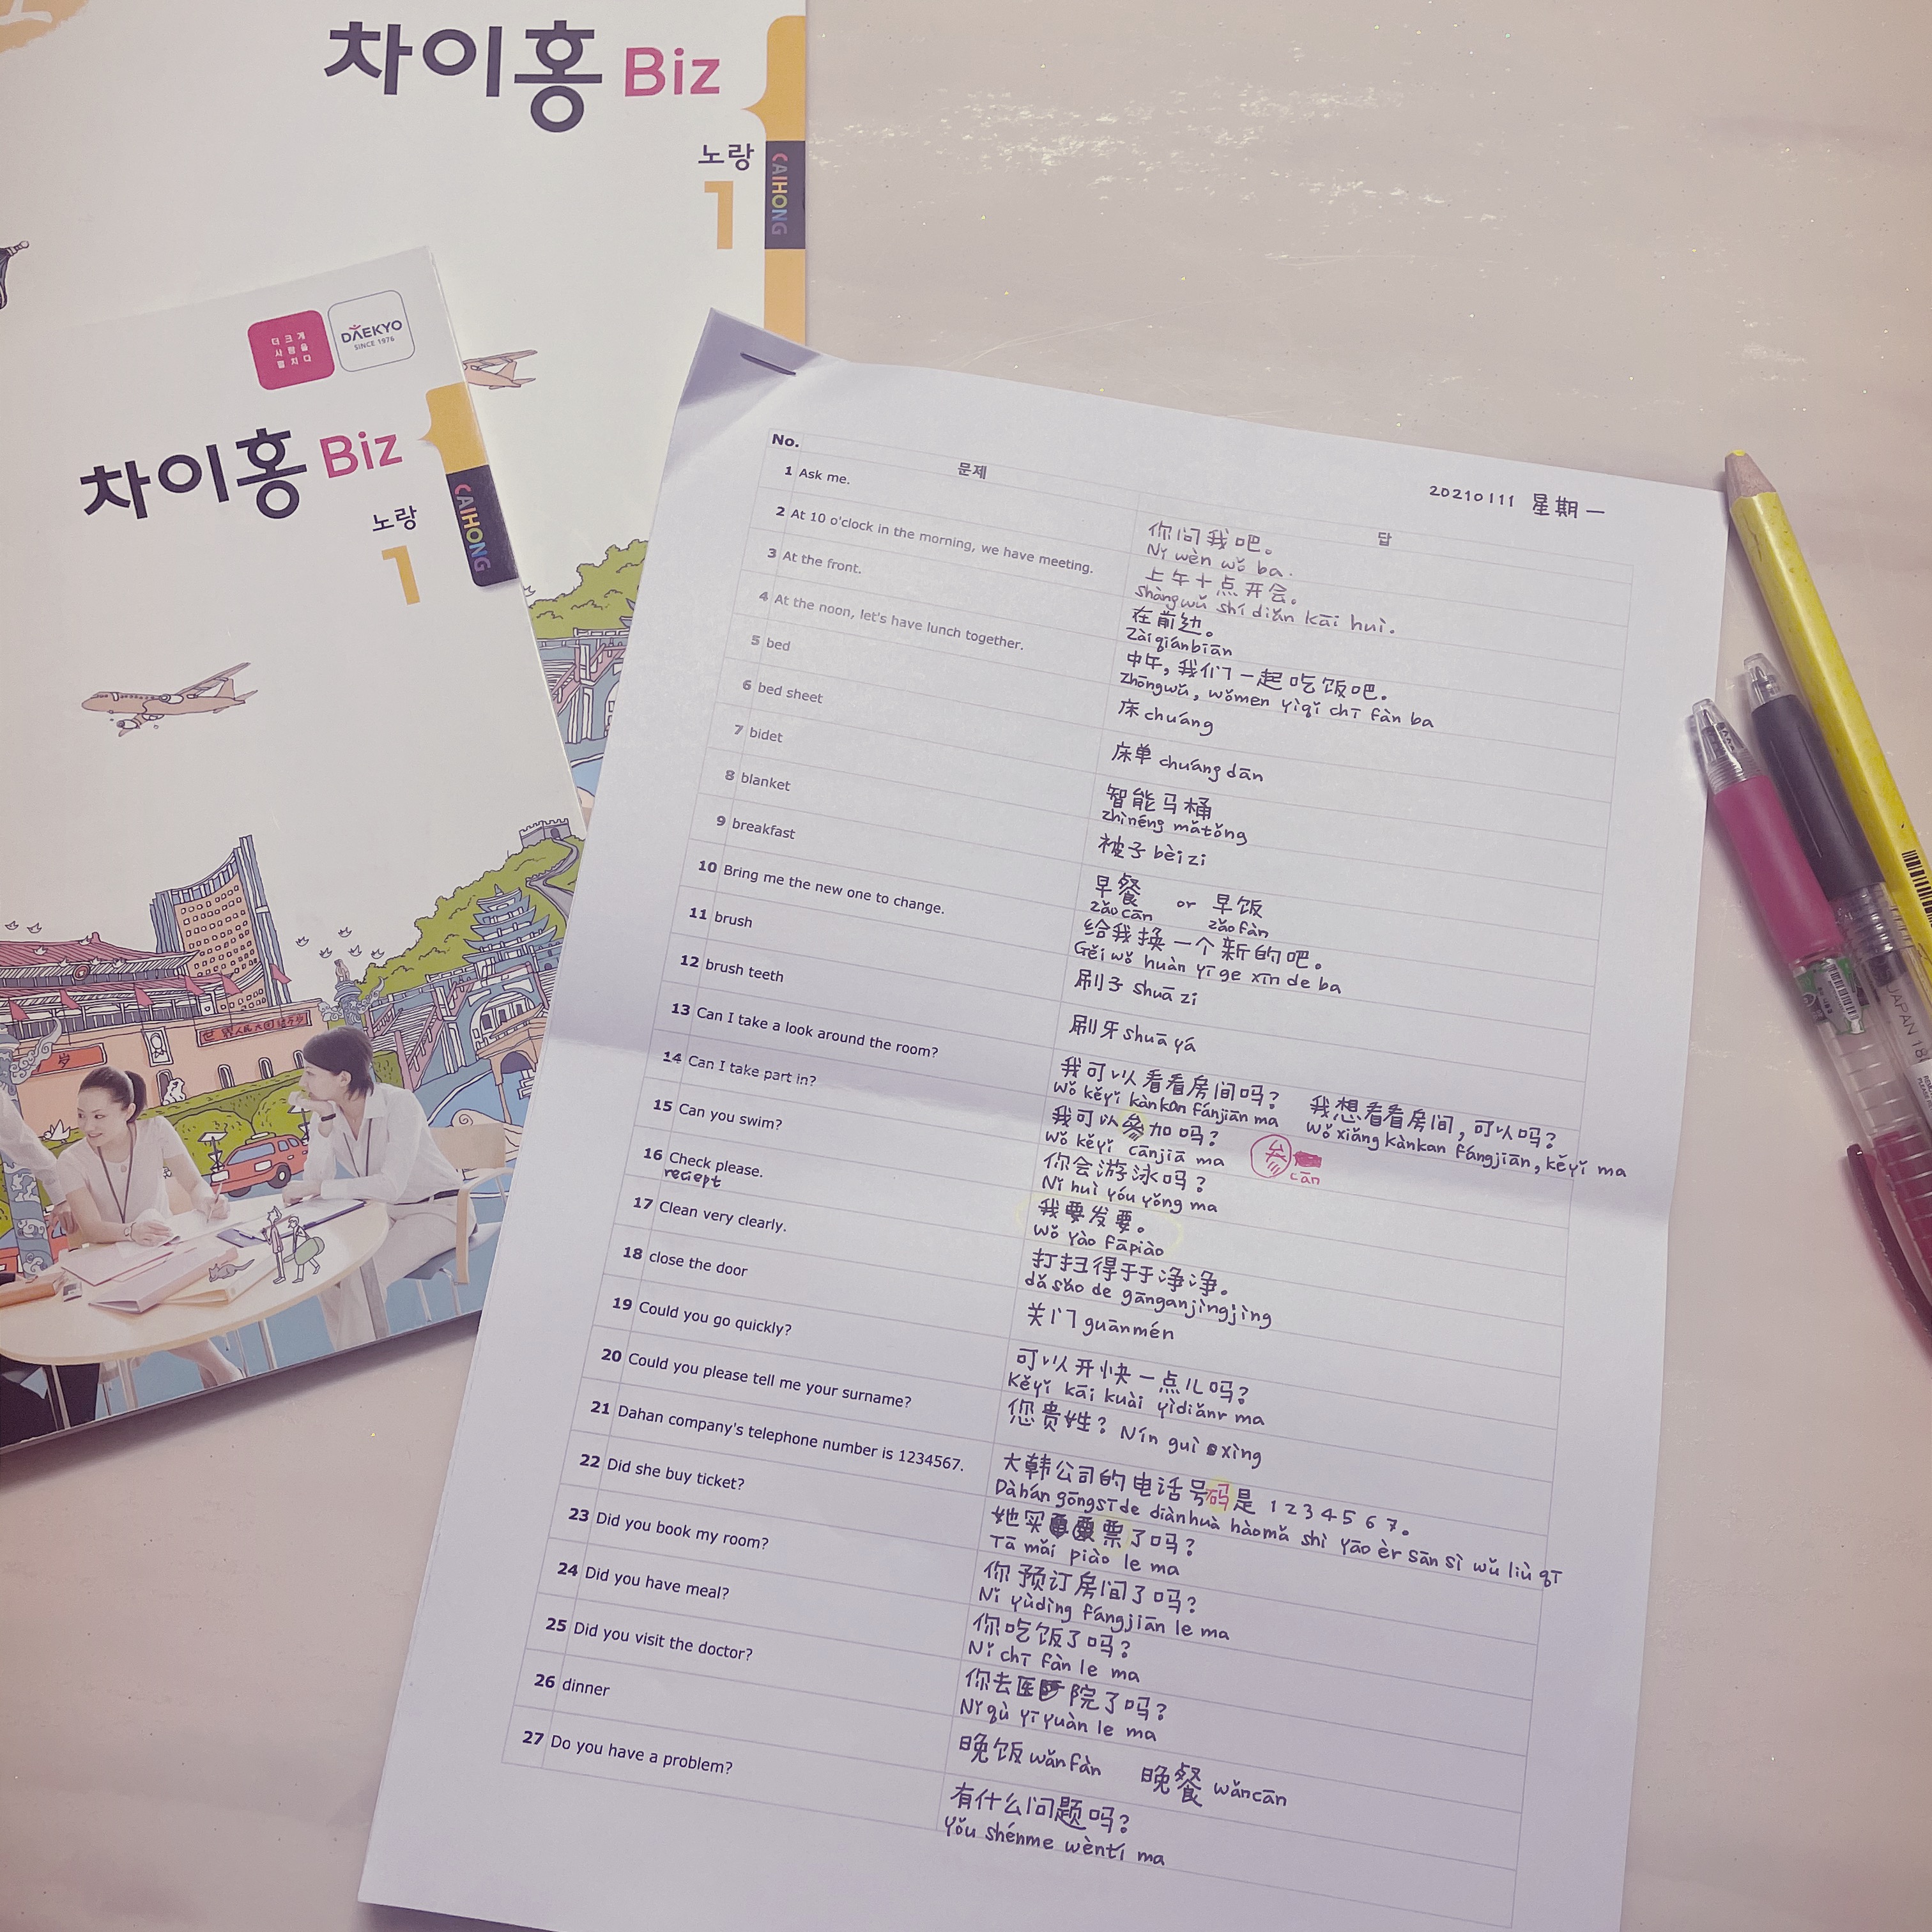 차이홍 Biz
노랑
1
CAIHONG
더 크게
사람을
펼치다
DAEKYO
SINCE 1976
차이홍 Biz
노랑
1
CAIHONG
20210111 星期一
No. 문제 답
1 Ask me.
你问我吧。
Nǐ wèn wǒ ba.
2 At 10 o'clock in the morning, we have meeting.
上午十点开会。
shàngwǔ shí diǎn kāi huì.
3 At the front.
在前边。
Zàiqiánbiān
4 At the noon, let's have lunch together.
中午, 我们一起吃饭吧。
Zhōngwǔ, wǒmen yìqǐ chī fàn ba
5 bed
床 chuáng
6 bed sheet
床单 chuáng dān
7 bidet
智能马桶
zhìnéng mǎtǒng
8 blanket
被子 bèi zi
9 breakfast
早餐 or 早饭
zǎo cān zǎo fàn
10 Bring me the new one to change.
给我换一个新的吧。
Gěi wǒ huàn yī ge xīn de ba
11 brush
刷子 shuā zi
12 brush teeth
刷牙 shuā yá
13 Can I take a look around the room?
我可以看看房间吗? 我想看看房间, 可以吗?
Wǒ kěyǐ kànkan fánjiān ma Wǒ xiǎng kànkan fángjiān, kěyǐ ma
14 Can I take part in?
我可以参加吗?
Wǒ kěyǐ cānjiā ma
参
cān
15 Can you swim?
你会游泳吗?
Nǐ huì yóu yǒng ma
16 Check please.
reciept
我要发要。
Wǒ Yào fāpiào
17 Clean very clearly.
打扫得干干净净。
dǎ sǎo de gānganjìngjìng
18 close the door
关门 guānmén
19 Could you go quickly?
可以开快一点儿吗?
Kěyǐ kāi kuài yìdiǎnr ma
20 Could you please tell me your surname?
您贵姓? Nín guì xìng
21 Dahan company's telephone number is 1234567.
大韩公司的电话号码是 1 2 3 4 5 6 7。
Dàhán gōngsī de diànhuà hàomǎ shì yāo èr sān sì wǔ liù qī
22 Did she buy ticket?
她买票了吗?
Tā mǎi piào le ma
23 Did you book my room?
你预订房间了吗?
Nǐ yùdìng fángjiān le ma
24 Did you have meal?
你吃饭了吗?
Nǐ chī fàn le ma
25 Did you visit the doctor?
你去医院了吗?
Nǐ qù yī yuàn le ma
26 dinner
晚饭 wǎnfàn 晚餐 wǎncān
27 Do you have a problem?
有什么问题吗?
Yǒu shénme wèntí ma